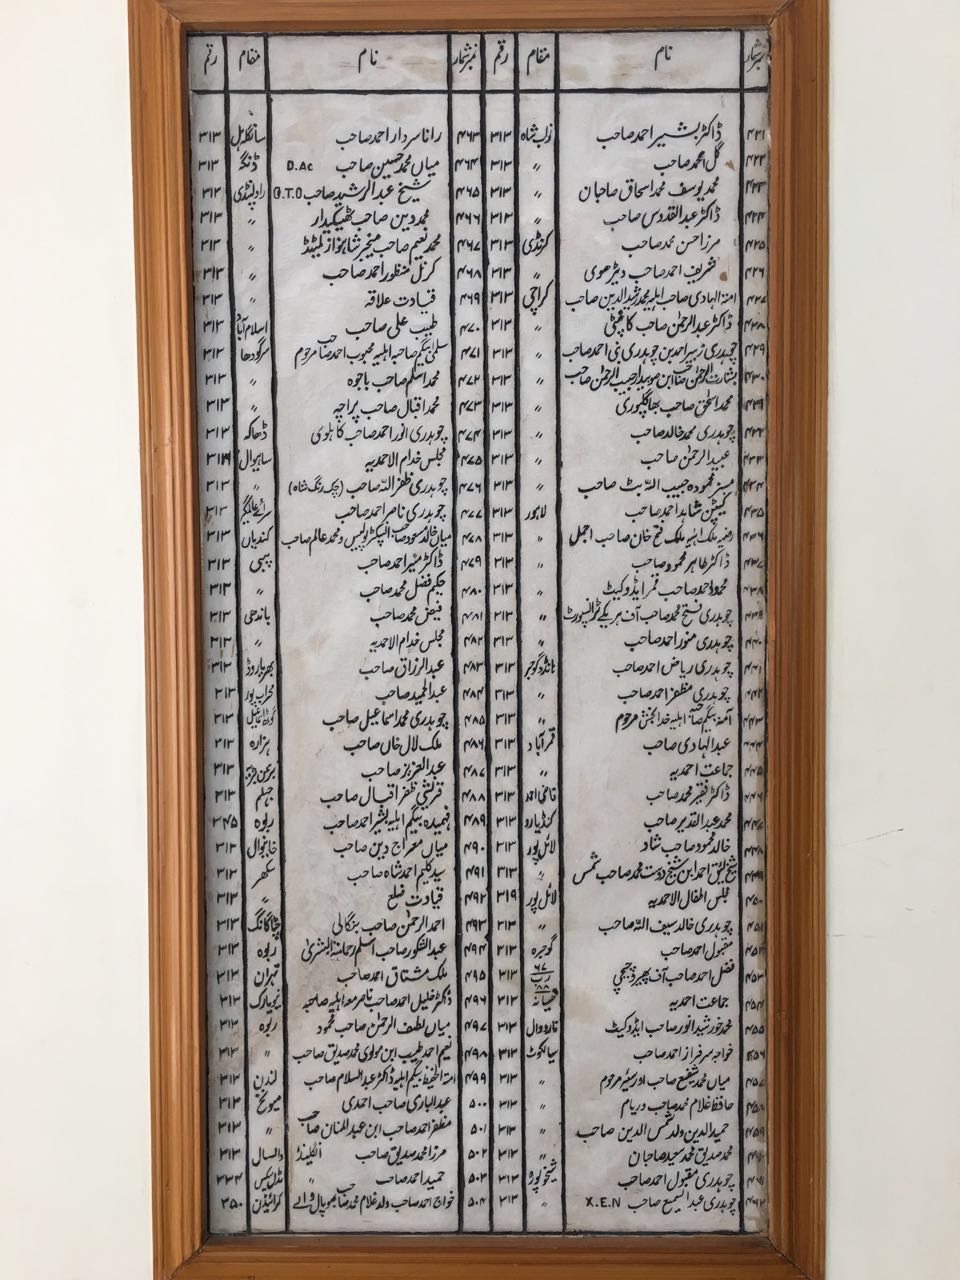 نمبر شمار نام مقام رقم نمبر شمار نام مقام رقم
۴۲۱ ڈاکٹر بشیر احمد صاحب نواب شاہ ۳۱۳ ۴۶۳ رانا سردار احمد صاحب سانگلہ ہل ۳۱۳
۴۲۲ گل محمد صاحب 〃 ۳۱۳ ۴۶۴ میاں محمد حسین صاحب D.Ac ڈنگہ ۳۱۳
۴۲۳ محمد یوسف محمد اسحاق صاحبان 〃 ۳۱۳ ۴۶۵ شیخ عبدالرشید صاحب راولپنڈی ۳۱۳
۴۲۴ ڈاکٹر عبدالقدوس صاحب 〃 ۳۱۳ ۴۶۶ محمد دین صاحب ٹھیکیدار 〃 ۳۱۳
۴۲۵ مرزا حسن محمد صاحب کرنڈی ۳۱۳ ۴۶۷ محمد نعیم صاحب منیجر شاہنواز لمیٹڈ 〃 ۳۱۳
۴۲۶ شریف احمد صاحب دیڑھوی 〃 ۳۱۳ ۴۶۸ کرنل منظور احمد صاحب 〃 ۳۱۳
۴۲۷ امۃ الہادی صاحبہ اہلیہ محمد رشد الدین صاحب کراچی ۳۱۳ ۴۶۹ قیادت علاقہ 〃 ۳۱۳
۴۲۸ ڈاکٹر عبدالرحمٰن صاحب کامٹی 〃 ۳۱۳ ۴۷۰ طبیب علی صاحب اسلام آباد ۳۱۳
۴۲۹ چوہدری زبیر احمد بن چوہدری بنی احمد صاحب 〃 ۳۱۳ ۴۷۱ سلمیٰ بیگم صاحبہ اہلیہ محبوب احمد صاحب مرحوم سرگودھا ۳۱۳
۴۳۰ بشارت الرحمٰن صاحب ابن صوبیدار حبیب الرحمٰن صاحب 〃 ۳۱۳ ۴۷۲ محمد اسلم صاحب باجوہ 〃 ۳۱۳
۴۳۱ محمد اسحٰق صاحب بھاگلپوری 〃 ۳۱۳ ۴۷۳ محمد اقبال صاحب پراچہ 〃 ۳۱۳
۴۳۲ چوہدری محمد خالد صاحب 〃 ۳۱۳ ۴۷۴ چوہدری انور احمد صاحب کاہلوی ڈھاکہ ۳۱۳
۴۳۳ عبید الرحمٰن صاحب 〃 ۳۱۳ ۴۷۵ مجلس خدام الاحمدیہ ساہیوال ۳۱۹
۴۳۴ مسز محمودہ حبیب اللہ بٹ صاحب 〃 ۳۱۳ ۴۷۶ چوہدری ظفر اللہ صاحب 〃 ۳۱۳
۴۳۵ کیپٹن شاہد احمد صاحب لاہور ۳۱۳ ۴۷۷ چوہدری ناصر احمد صاحب سرائے عالمگیر ۳۱۳
۴۳۶ رضیہ ملک اہلیہ ملک فتح خان صاحب اجمل 〃 ۳۱۳ ۴۷۸ میاں خالد مسعود صاحب انسپکٹر پولیس و محمد عالم صاحب کندیاں ۳۱۳
۴۳۷ ڈاکٹر طاہر محمود صاحب 〃 ۳۱۳ ۴۷۹ ڈاکٹر منیر احمد صاحب پبی ۳۱۳
۴۳۸ محمود احمد صاحب قمر ایڈووکیٹ 〃 ۳۱۳ ۴۸۰ حکیم فضل محمد صاحب 〃 ۳۱۳
۴۳۹ چوہدری فتح محمد صاحب آف ہریکے ٹرانسپورٹ 〃 ۳۱۳ ۴۸۱ فیض محمد صاحب باندھی ۳۱۳
۴۴۰ چوہدری منور احمد صاحب 〃 ۳۱۳ ۴۸۲ مجلس خدام الاحمدیہ 〃 ۳۱۳
۴۴۱ چوہدری ریاض احمد صاحب ہانڈو گوجر ۳۱۳ ۴۸۳ عبدالرزاق صاحب بھریا روڈ ۳۱۳
۴۴۲ چوہدری مظفر احمد صاحب 〃 ۳۱۳ ۴۸۴ عبدالحمید صاحب محراب پور ۳۱۳
۴۴۳ آمنہ بیگم صاحبہ اہلیہ خدا بخش مرحوم 〃 ۳۱۳ ۴۸۵ چوہدری محمد اسماعیل صاحب ۳۱۳
۴۴۴ عبدالہادی صاحب قمر آباد ۳۱۳ ۴۸۶ ملک لال خاں صاحب ہزارہ ۳۱۳
۴۴۵ جماعت احمدیہ 〃 ۳۱۳ ۴۸۷ عبدالعزیز صاحب ۳۱۳
۴۴۶ ڈاکٹر فقیر محمد صاحب قاضی احمد ۳۱۳ ۴۸۸ قریشی ظفر اقبال صاحب جہلم ۳۱۳
۴۴۷ محمد عبدالقدیر صاحب کنڈیارو ۳۱۳ ۴۸۹ فہمیدہ بیگم اہلیہ بشیر احمد صاحب ربوہ ۳۴۵
۴۴۸ خالد محمود صاحب شاد لائل پور ۳۱۳ ۴۹۰ میاں معراج دین صاحب خانیوال ۳۱۳
۴۴۹ شیخ لئیق احمد ابن شیخ دوست محمد صاحب شمس 〃 ۳۱۳ ۴۹۱ سید کلیم احمد شاہ صاحب سکھر ۳۱۳
۴۵۰ مجلس اطفال الاحمدیہ لائل پور ۳۱۹ ۴۹۲ قیادت ضلع 〃 ۳۱۳
۴۵۱ چوہدری خالد سیف اللہ صاحب 〃 ۳۱۳ ۴۹۳ احمد الرحمٰن صاحب بنگالی چٹاگانگ ۳۱۳
۴۵۲ مقبول احمد صاحب گوجرہ ۳۱۳ ۴۹۴ عبدالشکور صاحب اسلم ربوہ ۳۱۳
۴۵۳ فضل احمد صاحب آف پھیروچچی ۳۱۳ ۴۹۵ ملک مشتاق احمد صاحب تہران ۳۱۳
۴۵۴ جماعت احمدیہ ۳۱۳ ۴۹۶ ڈاکٹر خلیل احمد صاحب ناصر معہ اہلیہ صاحبہ نیویارک ۳۱۳
۴۵۵ محمد خورشید انور صاحب ایڈووکیٹ نارووال ۳۱۳ ۴۹۷ میاں لطیف الرحمٰن صاحب محمود ربوہ ۳۱۳
۴۵۶ خواجہ سرفراز احمد صاحب سیالکوٹ ۳۱۳ ۴۹۸ نعیم احمد طیب ابن مولوی محمد صدیق صاحب 〃 ۳۱۳
۴۵۷ میاں محمد شفیع صاحب اوورسیئر مرحوم 〃 ۳۱۳ ۴۹۹ امۃ الحفیظ بیگم اہلیہ ڈاکٹر عبدالسلام صاحب لندن ۳۱۳
۴۵۸ حافظ غلام محمد صاحب ورہام 〃 ۳۱۳ ۵۰۰ عبدالباری صاحب احمدی میونخ ۳۱۳
۴۵۹ حمید الدین ولد شمس الدین صاحب 〃 ۳۱۳ ۵۰۱ مظفر احمد صاحب ابن عبدالمنان صاحب 〃 ۳۱۳
۴۶۰ محمد صدیق محمد سعید صاحبان 〃 ۳۱۳ ۵۰۲ مرزا محمد صدیق صاحب انگلینڈ والسال ۳۱۳
۴۶۱ چوہدری مقبول احمد صاحب شیخوپورہ ۳۱۳ ۵۰۳ حمید احمد صاحب 〃 مڈلسیکس ۳۳۴
۴۶۲ چوہدری عبدالسمیع صاحب X.E.N 〃 ۳۱۳ ۵۰۴ خواج احمد صاحب ولد غلام محمد صاحب بھوپال والے کرائیڈن ۳۵۰